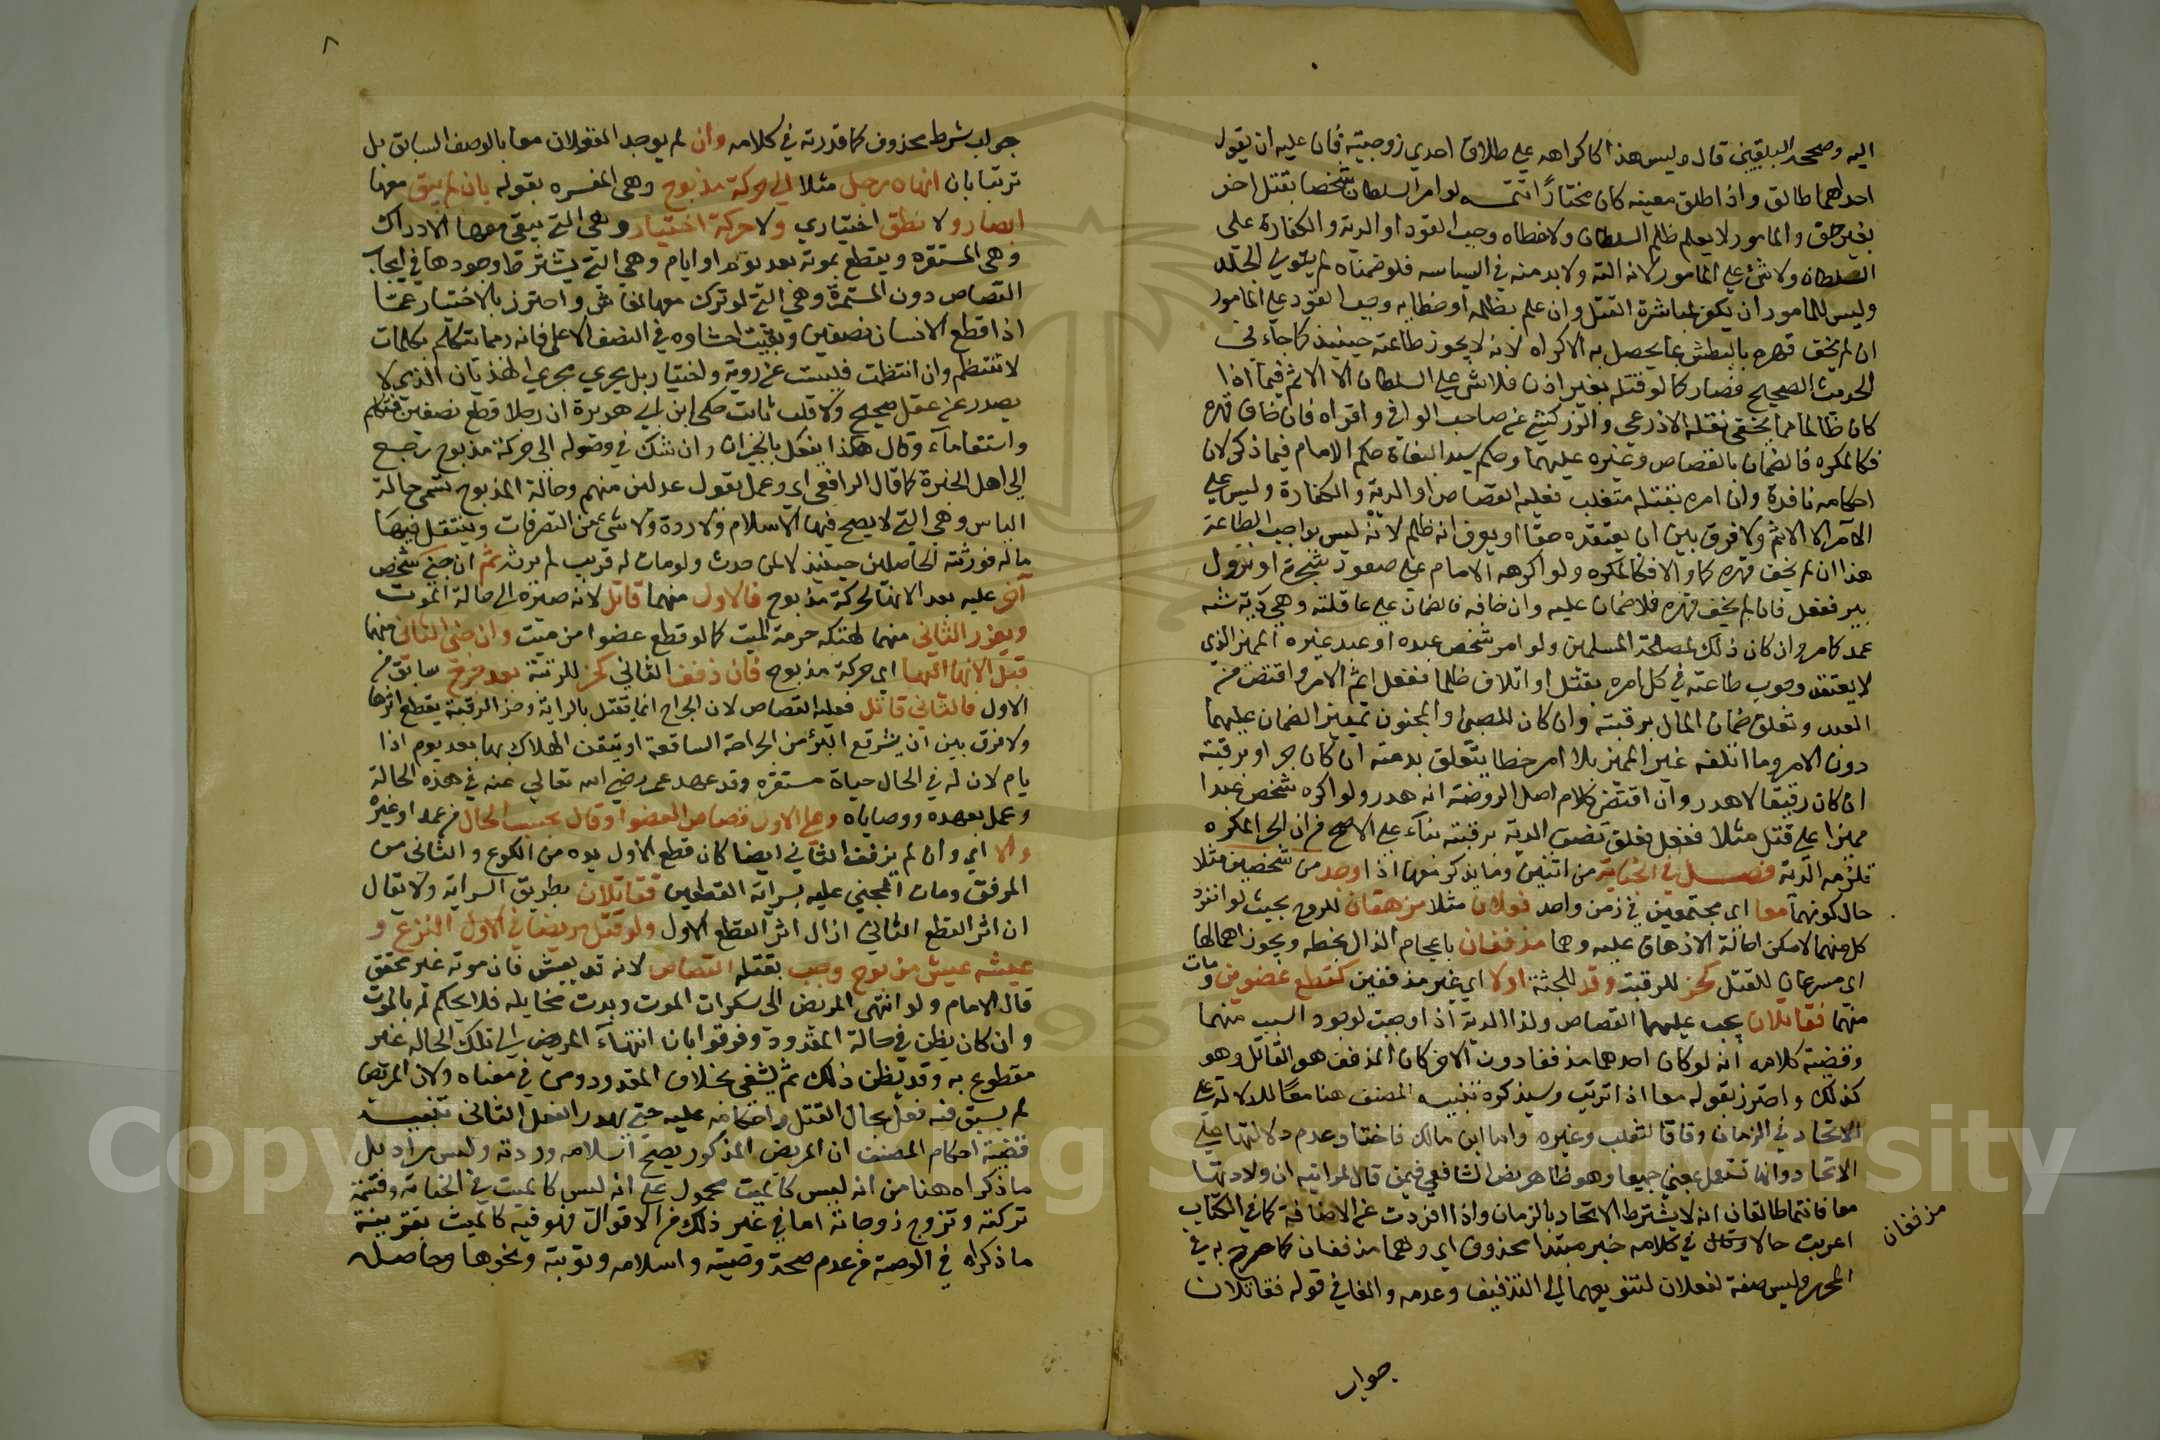 اليه وصححه البلقيني قال وليس هذا كاكراهه على طلاق احدي زوجيته فان عليه ان يقول
احداهما طالق واذا طلق معينه كان مختاراً تتمــه لو امر السلطان شخصا بقتل اخر
بغير حق والمامور لا يعلم ظلم السلطان ولا خطاه وجب القود او الدية والكفارة على
السلطان ولا شئ على المامور لانه الته ولا بد منه في السياسه فلو ضمناه لم يتولى الجلد احد
وليس للمامور ان يكفر لمباشرة القتل وان علم بظلمه او خطايه وجب القود على المامور
ان لم يخف قهره بالبطش بما يحصل به الاكراه لانه لا يجوز طاعته حينيذ كما جاء في
الحديث الصحيح فصار كما لو قتله بغير اذن فلا شى على السلطان الا الاثم فيما اذا
كان ظالما فيما يخفى نقله الاذرعي والزركشي عن صاحب الوافي واقراه فان خاف قهره
فكالمكره فالضمان بالقصاص وغيره عليهما وحكم سيد البغاة حكم الامام فيما ذكر لان
احكامه نافذة وان امره بقتله متغلب فعليه القصاص او الدية والكفارة وليس على
الآمر الا الاثم ولا فرق بين ان يعتقده حقا او يعرف انه ظلم لانه ليس بواجب الطاعة
هذا ان لم يخف قهره كما والا فكالمكره ولو اكرهه الامام على صعود شجرة او نزول
بير ففعل فان لم يخف قهره فلا ضمان عليه وان خافه فالضمان على عاقلته وهي دية شبه
عمد كما مر وان كان ذلك لمصلحة المسلمين ولو امر شخص عبده او عبد غيره المميز الذي
لا يعتقد وجوب طاعته في كل امره بقتل او اتلاف ظلما ففعل اثم الامر واقتص من
العبد وتعلق ضمان المال برقبته وان كان للصبى والمجنون تمييز الضمان عليهما
دون الامر وما اتلفه غير المميز بلا امر خطا يتعلق بدمته ان كان حر او برقبته
ان كان رقيقا لا هدر وان اقتضى كلام اصل الروضة انه هدر ولو اكره شخص عبدا
مميزا على قتل مثلا ففعل تعلق نصف الدية برقبته بناء على الاصح من ان الحر المكره
تلزمه الدية فصــل في الجناية من اثنين وما يذكر معها اذا وجد من شخصين مثلا
حال كونهما معا اى مجتمعين في زمن واحد فعلان مثلا مزهقان للروح بحيث لو انفرد
كل منهما لامكن احالة الازهاق عليه وهما مذففان باعجام الذال بخطه ويجوز اهمالها
اى مسرعان للقتل كحز للرقبة وقد للجثة اولا اى غير مذففين كقطع عضوين ومات
منهما فقاتلان يجب عليهما القصاص وكذا الدية اذا وجبت لوجود السبب منهما
وقضية كلامه انه لو كان احدهما مذففا دون الاخر كان المذفف هو القاتل وهو
كذلك واحترز بقوله معا اذا ترتب وسيذكره تنبيــه المصنف هنا معًا للدلالة على
الاتحاد في الزمان وفاقا لثعلب وغيره واما ابن مالك فاختار عدم دلالتها على
الاتحاد وانها تستعمل بمعنى جميعا وهو ظاهر نص الشافعى فيمن قال لامراتيه ان ولدتما
معا فانتما طالقان انه لا يشترط الاتحاد بالزمان واذا افردت عن الاضافة كما في الكتاب
اعربت حالا في كلامه خبر مبتدا محذوف اى وهما مذففان كما صرح به في
المحرر وليس صفة لفعلان لتنويعهما الى التذفيف وعدمه والفا في قوله فقاتلان
مذففان
جواب
٨
جواب شرط محذوف كما قدرته في كلامه وان لم يوجد الفعلان معا بالوصف السابق بل
ترتبا بان انهاه رجل مثلا الى حركة مذبوح وهى المفسره بقوله بان لم يبق معها
ابصار ولا نطق اختياري ولا حركة اختيار وهى التى يبقى معها الادراك
وهى المستقره ويقطع بموته بعد يوم او ايام وهى التى يشترط وجودها في ايجاب
القصاص دون المستمرة وهي التى لو ترك معها لعاش واحترز بالاختيار عما
اذا قطع الانسان نصفين وبقيت احشاوه في النصف الاعلى فانه ربما يتكلم بكلمات
لا تنتظم وان انتظمت فليست عن روية واختيار بل يجري مجري الهذيان الذي لا
يصدر عن عقل صحيح ولا قلب ثابت حكى ابن ابي هريرة ان رجلا قطع نصفين فتكلم
واستقا ماء وقال هكذا يفعل بالجيران وان شك في وصوله الى حركة مذبوح رجع
الى اهل الخبرة كما قال الرافعي اي وعمل بقول عدلين منهم وحالة المذبوح تسمى حالة
الياس وهى التى لا يصح فيها الاسلام ولا ردة ولا شئ من التصرفات وينتقل فيها
ماله لورثته الحاصلين حينيذ لا لمن حدث ولو مات له قريب لم يرثه ثم ان جنى شخص
آخر عليه بعد الانها لحركة مذبوح فالاول منهما قاتل لانه صيره الى حالة الموت
ويعزر الثاني منهما لهتكه حرمة الميت كما لو قطع عضوا من ميت وان جنى الثانى منهما
قبل الانها اليها اى حركة مذبوح فان ذفف الثاني كحز للرقبة بعد جرح سابق من
الاول فالثاني قاتل فعليه القصاص لان الجراح انما يقتل بالسراية وحز الرقبة يقطع اثرها
ولا فرق بين ان يتوقع البرؤ من الجراحة السابقة او يتيقن الهلاك بها بعد يوم او
ايام لان له في الحال حياة مستقره وقد عهد عمر رضي الله تعالى عنه في هذه الحالة
وعمل بعهده ووصاياه وعلى الاول قصاص العضو او مال بحسب الحال من عمد او غيره
والا اي وان لم يذفف الثاني ايضا كان قطع الاول يده من الكوع والثانى من
المرفق ومات المجني عليه بسراية القطعين فقاتلان بطريق السراية ولا يقال
ان اثر القطع الثاني ازال اثر القطع الاول ولو قتل مريضا في الاول النزع و
عيشه عيش مذبوح وجب بقتله القصاص لانه قد يعيش فان موته غير محقق
قال الامام ولو انتهى المريض الى سكرات الموت وبدت مخايله فلا يحكم له بالموت
وان كان يظن في حالة المقدود وفرقوا بان انتهاء المريض الى تلك الحاله غير
مقطوع به وقد يظن ذلك ثم يشفى بخلاف المقدود ومن في معناه ولان المريض
لم يسبق فيه فعل يحال القتل واحكامه عليه حتى يهدر الفعل الثانى تنبيــه
قضية احكام المصنف ان المريض المذكور يصح اسلامه وردته وليس مراد بل
ما ذكراه هنا من انه ليس كالميت محمول على انه ليس كالميت في الجناية وقسمة
تركته وتزوج زوجاته اما في غير ذلك من الاقوال فهو فيه كالميت بقرينة
ما ذكراه في الوصية من عدم صحة وصيته واسلامه وتوبته ونحوها وحاصله